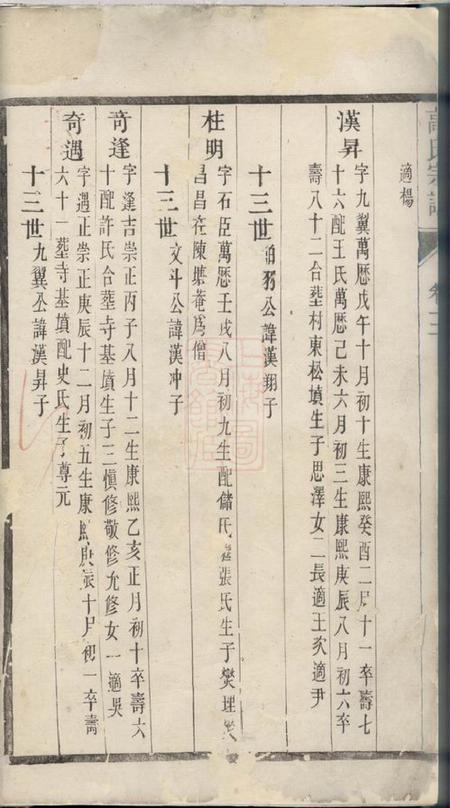 適楊
漢昇
字九翼萬歷戊午十月初十生康熙癸酉二月十一卒壽七
十六配王氏萬歷己未六月初三生康熙庚辰八月初六卒
壽八十二合葬村東松墳生子思澤女二長適王次適尹
十三世 公諱漢翔子
柱明
字石臣萬歷壬戌八月初九生配儲氏 張氏生子爕理
昌昌在陳塘菴爲僧
十三世文斗公諱漢冲子
奇逢
字逢吉崇正丙子八月十二生康熙乙亥正月初十卒壽六
十配許氏合葬寺基墳生子三慎修敬修允修女一適吳
奇遇
字遇正崇正庚辰十二月初五生康熙庚辰十月初一卒壽
六十一葬寺基墳配史氏生子尊元
十三世九翼公諱漢昇子